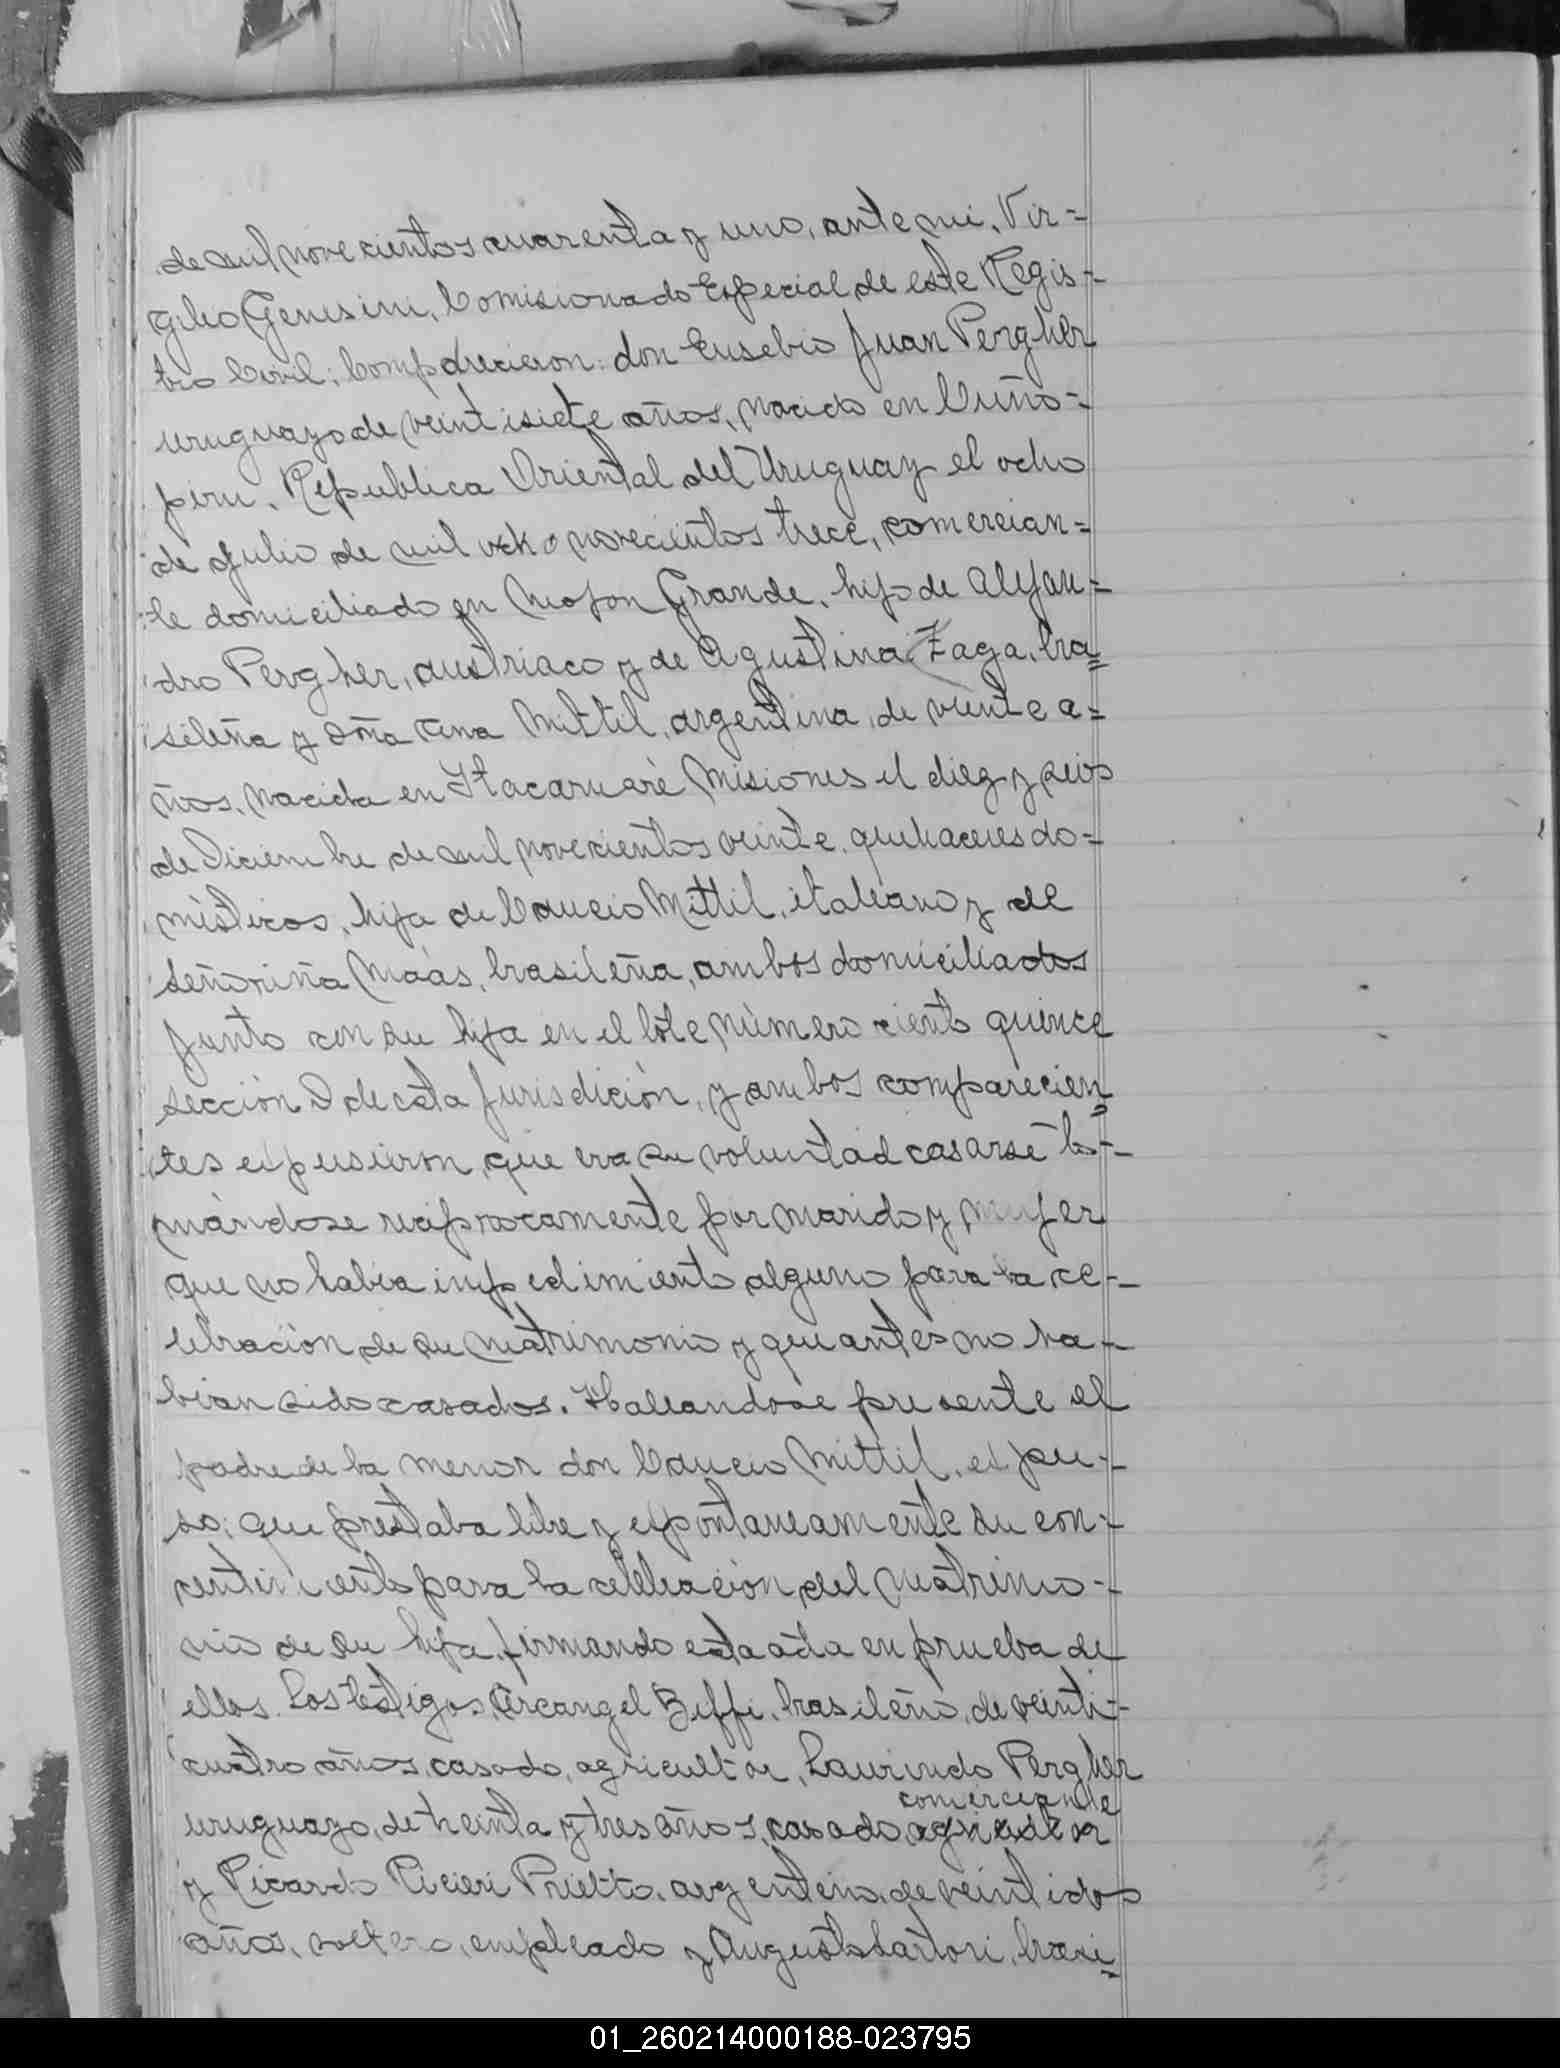 de mil novecientos cuarenta y uno, ante mi, Vir=
gilio Genesini, Comisionado Especial de este Regis=
tro Civil: Comparecieron: don Eusebio Juan Pergher
uruguayo de veintisiete años, nacido en Cuño=
piru, Republica Oriental del Uruguay el ocho
de Julio de mil ocho novecientos trece, comercian=
te domiciliado en Mojon Grande, hijo de Alejan=
dro Pergher, austriaco y de Agustina Zaga, bra=
sileña y doña Ana Mittil, argentina, de veinte a=
ños, nacida en Itacaruaré Misiones el diez y seis
de Diciembre de mil novecientos veinte, quehaceres do=
mésticos, hija de Mittil, italiano y de
Señoriña Maás, brasileña, ambos domiciliados
junto con su hija en el lote número ciento quince
sección D de esta Jurisdición, y ambos comparecien=
tes expusieron, que era su voluntad casarse to=
mándose reciprocamente por marido y mujer
que no habia impedimiento alguno para la ce=
lebración de su matrimonio y que antes no ha=
bian sido casados. Hallandose presente el
padre de la menor don Mittil, expu=
so: que prestaba libre y espontaneamente su con=
centimiento para la celebración del matrimo=
nio de su hija, firmando esta acta en prueba de
ello. Los testigos, Arcangel Biffi, brasileño, de veinti=
cuatro años, casado, agricultor, Laurindo Pergher
comerciante
uruguayo, de treinta y tres años, casado, agricultor
y Ricardo Ricieri Prietto, argentino, de veintidos
años, soltero, empleado y Augusto Sartori, brasi=
01_260214000188-023795